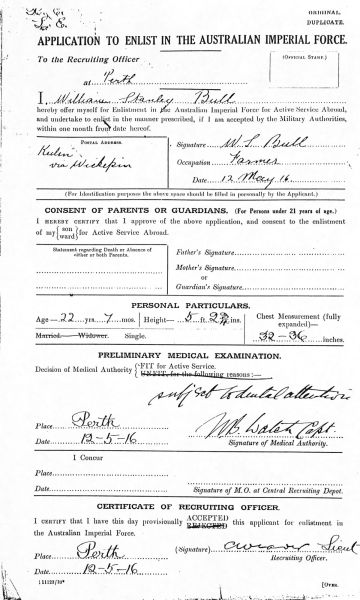 ORIGINAL.
DUPLICATE.
APPLICATION TO ENLIST IN THE AUSTRALIAN IMPERIAL FORCE.
To the Recruiting Officer
(OFFICIAL STAMP.)
at Perth
I, William Stanley Bull
hereby offer myself for Enlistment in the Australian Imperial Force for Active Service Abroad,
and undertake to enlist in the manner prescribed, if I am accepted by the Military Authorities,
within one month from date hereof.
POSTAL ADDRESS.
Kulin
via Wickepin
Signature W. S. Bull
Occupation Farmer
Date 12 May 16
(For Identification purposes the above space should be filled in personally by the Applicant.)
CONSENT OF PARENTS OR GUARDIANS. (For Persons under 21 years of age.)
I HEREBY CERTIFY that I approve of the above application, and consent to the enlistment
of my {son ward} for Active Service Abroad.
Statement regarding Death or Absence of
either or both Parents.
Father's Signature
Mother's Signature
or
Guardian's Signature
PERSONAL PARTICULARS.
Age—22 yrs. 7 mos. Height—5 ft. ins.
Chest Measurement (fully
expanded)—
Married. Widower. Single.
32-36 inches.
PRELIMINARY MEDICAL EXAMINATION.
Decision of Medical Authority {FIT for Active Service.
UNFIT, for the following reasons:—
subject to dental attention
Place Perth
Date 12-5-16
Capt
Signature of Medical Authority.
I Concur
Place
Date
Signature of M.O. at Central Recruiting Depot.
CERTIFICATE OF RECRUITING OFFICER.
I CERTIFY that I have this day provisionally ACCEPTED REJECTED this applicant for enlistment in
the Australian Imperial Force.
Place Perth
(Signature) Lieut
Recruiting Officer.
Date 12-5-16
[OVER.